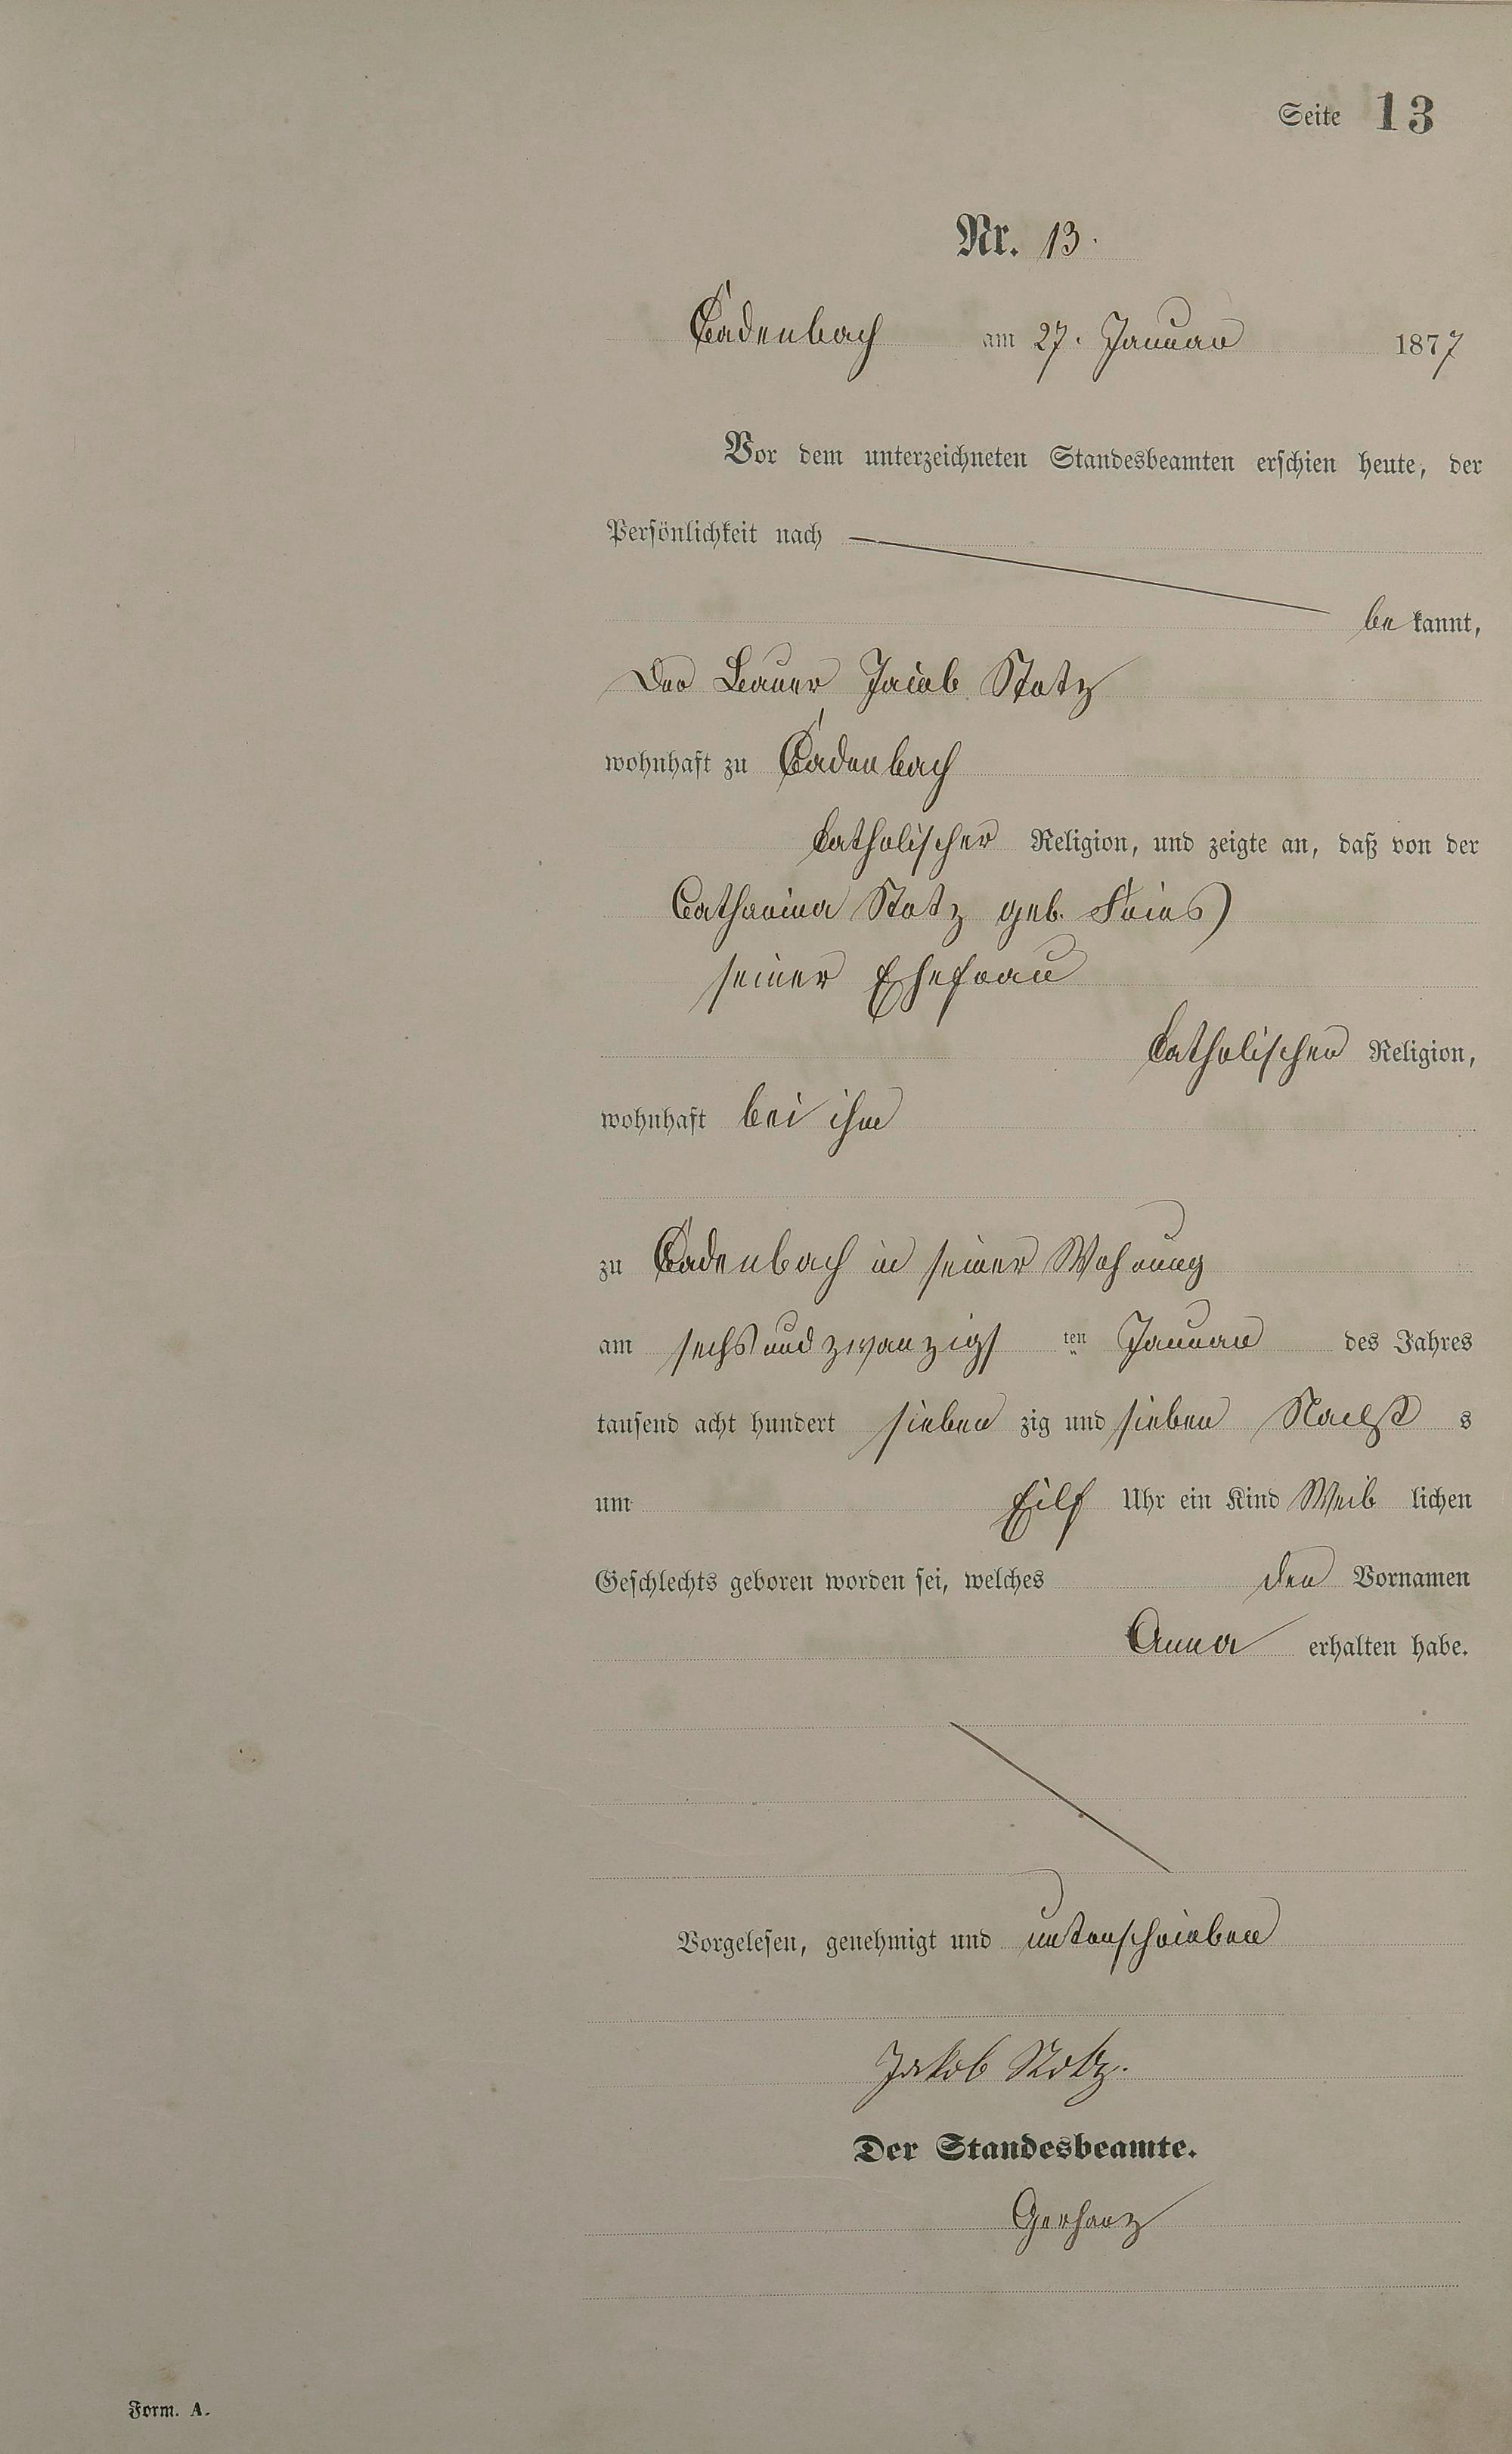 Seite 13
Nr. 13.
Cadenbach am 27. Januar 1877
Vor dem unterzeichneten Standesbeamten erschien heute, der
Persönlichkeit nach
be kannt,
Der Bauer Jacob Statz
wohnhaft zu Cadenbach
catholischer Religion, und zeigte an, daß von der
Catharina Statz geb.
seiner Ehefrau
catholischer Religion,
wohnhaft bei ihm
zu Cadenbach in seiner Wohnung
am sechsundzwanzigs ten Januar des Jahres
tausend acht hundert sieben zig und sieben Nachts
um Eilf Uhr ein Kind Weib lichen
Geschlechts geboren worden sei, welches den Vornamen
Anna erhalten habe.
Vorgelesen, genehmigt und unterschrieben
Jakob Statz.
Der Standesbeamte.
Gerharz
Form. A.